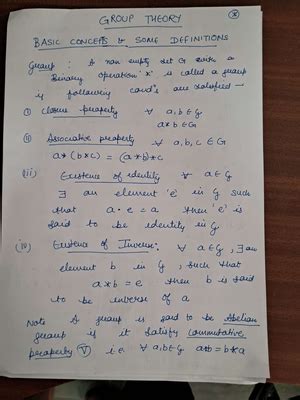 GROUP THEORY
BASIC CONCEPTS & SOME DEFINITIONS
Group : A non empty set G with a
Binary operation '*' is called a group
if following cond's are satisfied —
(i) Closure property ∀ a,b ∈ G
a*b ∈ G
(ii) Associative property ∀ a,b,c ∈ G
a*(b*c) = (a*b)*c
(iii) Existence of identity ∀ a ∈ G
∃ an element 'e' in G such
that a·e = a then 'e' is
said to be identity in G.
(iv) Existence of Inverse: ∀ a ∈ G, ∃ an
element b in G, such that
a*b = e then b is said
to be inverse of a
Note A group is said to be Abelian
group if it satisfy Commutative
property (V) i.e ∀ a,b ∈ G a*b = b*a